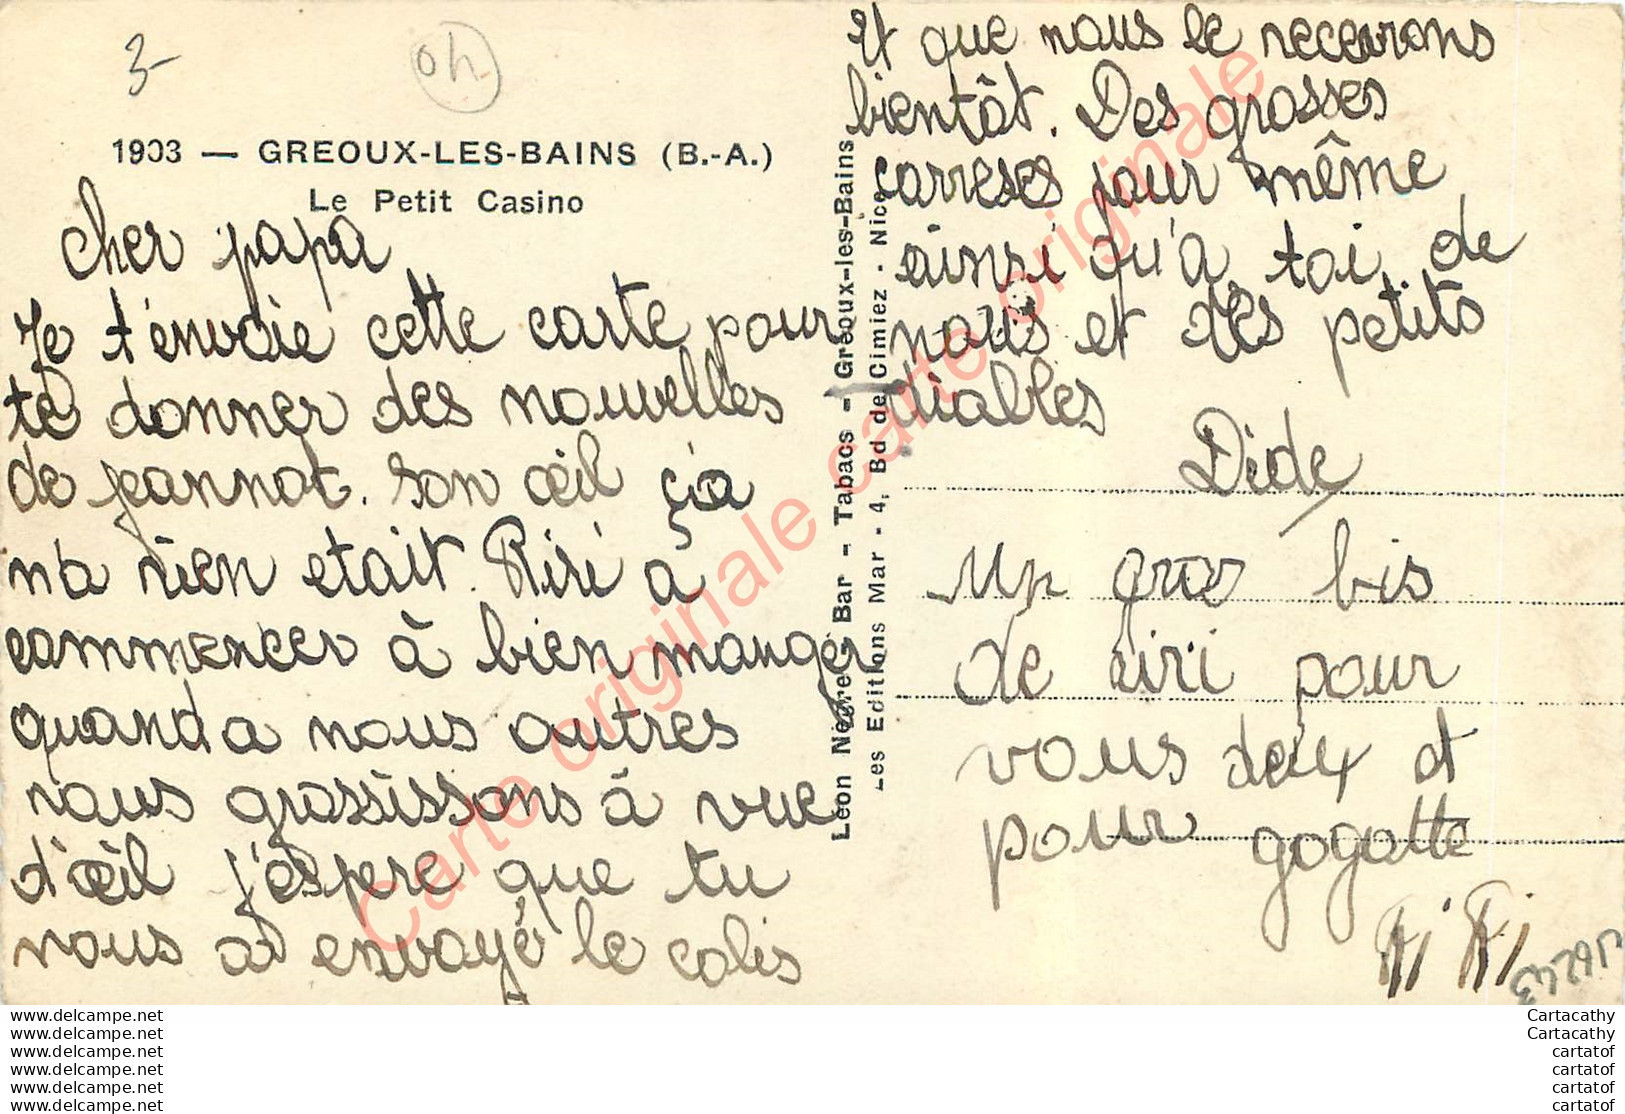 3-
04
1903 — GREOUX-LES-BAINS (B.-A.)
Le Petit Casino
Cher papa
Je t'envoie cette carte pour
te donner des nouvelles
de jeannot. Son œil ça
na rien etait. Riri a
commencer à bien manger
quand a nous autres
nous grossissons à vue
d'œil j'espere que tu
nous a envoyé le colis
Et que nous le recevrons
bientôt. Des grosses
carreses pour même
ainsi qu'a toi de
nous et des petits
diables
Dide
Un gros bis
de riri pour
vous deux et
pour gogotte
Fi Fi
Léon Nègre Bar - Tabacs - Gréoux-les-Bains
Les Editions Mar - 4, Bd de Cimiez - Nice
Carte originale carte originale
www.delcampe.net
www.delcampe.net
www.delcampe.net
www.delcampe.net
www.delcampe.net
www.delcampe.net
Cartacathy
Cartacathy
cartatof
cartatof
cartatof
cartatof